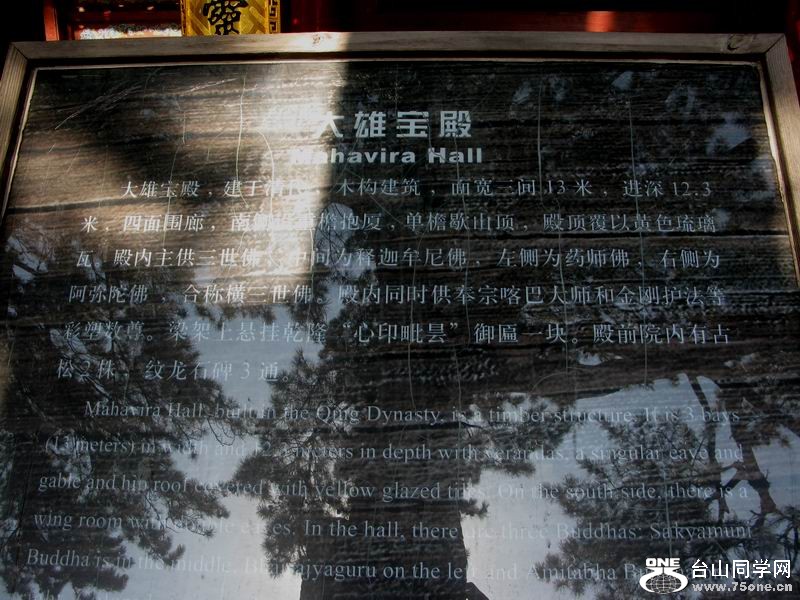 靈
大雄宝殿
Mahavira Hall
大雄宝殿，建于清代，木构建筑，面宽三间13米，进深12.3
米，四面围廊，南侧 重檐抱厦，单檐歇山顶，殿顶覆以黄色琉璃
瓦。殿内主供三世佛，中间为释迦牟尼佛，左侧为药师佛，右侧为
阿弥陀佛，合称横三世佛。殿内同时供奉宗喀巴大师和金刚护法等
彩塑数尊。梁架上悬挂乾隆“心印毗昙”御匾一块。殿前院内有古
松2株，纹龙石碑3通。
Mahavira Hall, built in the Qing Dynasty, is a timber structure. It is 3 bays
(13 meters) in width and 12.3 meters in depth with verandas, a singular eave and
gable and hip roof covered with yellow glazed tiles. On the south side, there is a
wing room with double eaves. In the hall, there are three Buddhas: Sakyamuni
Buddha is in the middle, Bhaisajyaguru on the left and Amitabha
ONE
台山同学网
www.75one.cn